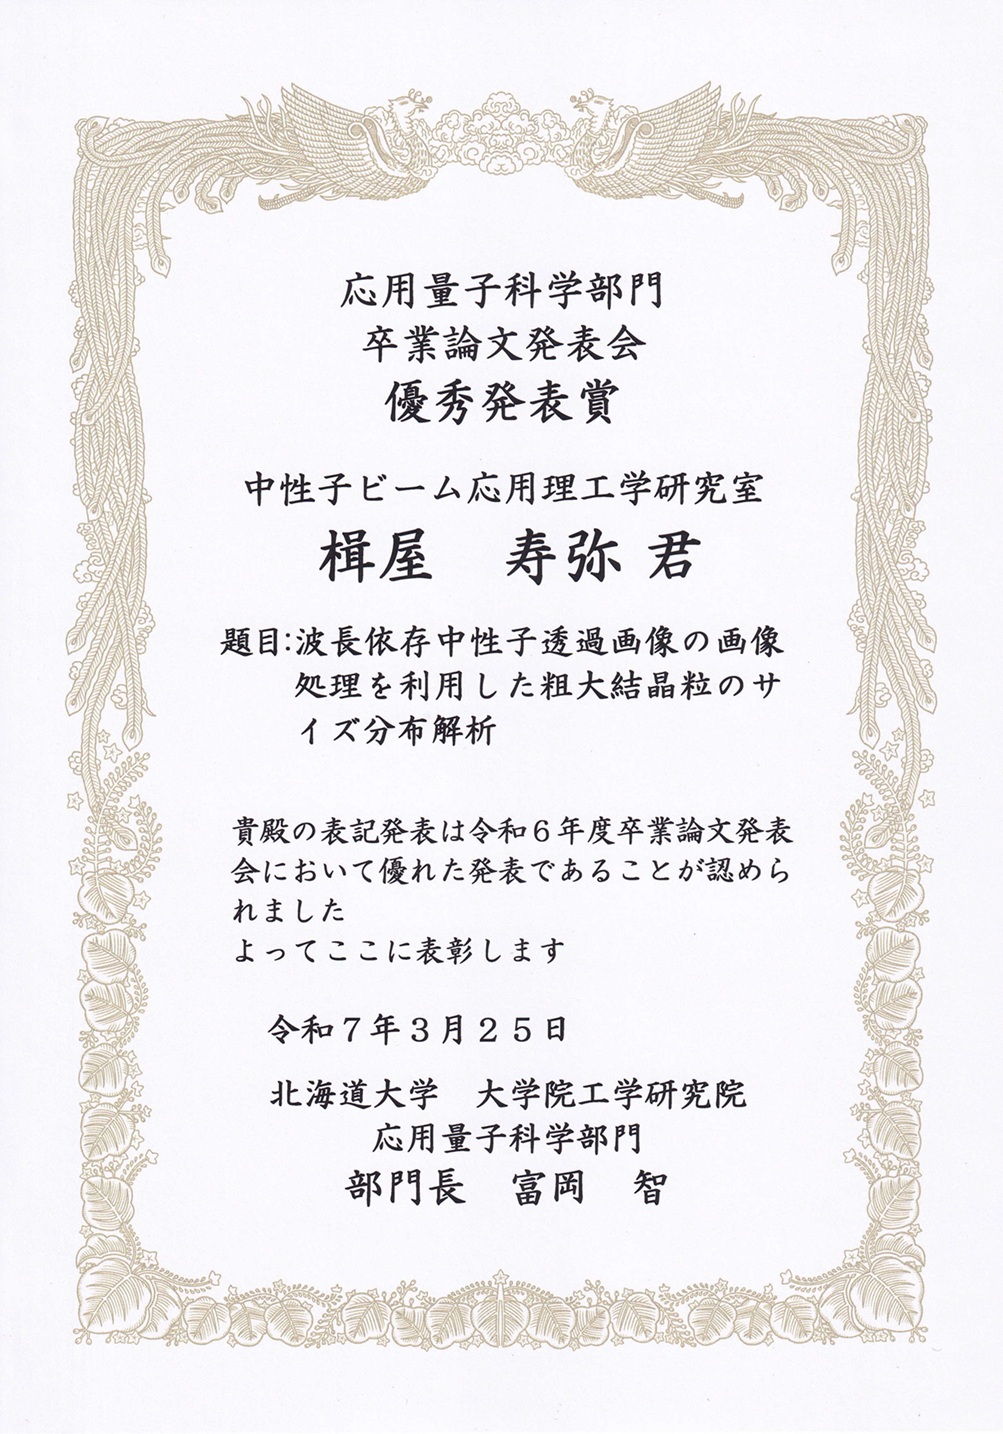 応用量子科学部門
卒業論文発表会
優秀発表賞
中性子ビーム応用理工学研究室
楫屋　寿弥 君
題目:波長依存中性子透過画像の画像
処理を利用した粗大結晶粒のサ
イズ分布解析
貴殿の表記発表は令和６年度卒業論文発表
会において優れた発表であることが認めら
れました
よってここに表彰します
令和７年３月２５日
北海道大学　大学院工学研究院
応用量子科学部門
部門長　富岡　智